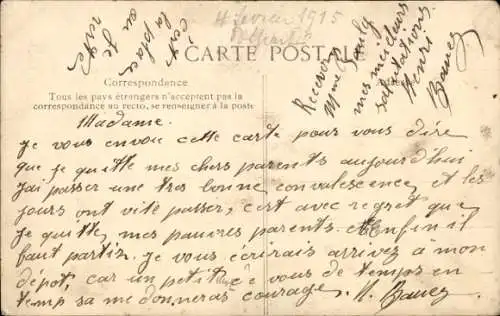 4 février 1915
c'est
la place
ou je
reste
CARTE POSTALE
Correspondance
Tous les pays étrangers n'acceptent pas la
correspondance au recto, se renseigner à la poste
Recevez
Mme
mes meilleurs
salutations
Henri
Bauez
Madame.
Je vous envoi cette carte pour vous dire
que je quitte mes chers parents aujourd'hui
J'ai passer une tres bonne convalescence, et les
jours ont vite passer, c'est avec regret que
je quitte mes pauvres parents. Enfin il
faut partir. Je vous écrirais arrivez à mon
dépot, car un petit de vous de temps en
temp sa me donneras courage. H. Bauez